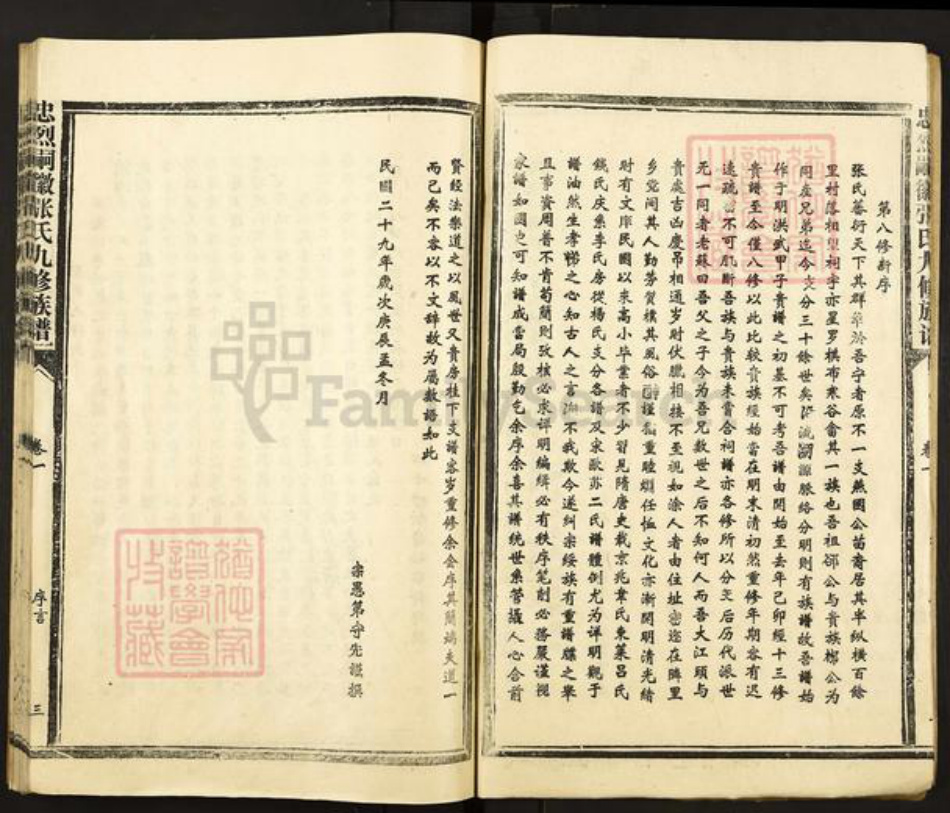 忠烈嗣徽張氏九修族譜
卷一
第八修新序
張氏蕃衍天下其群萃於吾宁者原不一支燕國公苗裔居其半纵橫百餘
里村落相望祠宇亦星罗棋布寒谷會其一族也吾祖邻公与貴族榔公为
同產兄弟迄今支分三十餘世矣派源脈络分明則有族譜故吾譜始
作于明洪武甲子貴譜之初基不可考吾譜由開始至去年己卯經十三修
貴譜至今僅八修以此比較貴族經始當在明末清初然重修年期容有迟
速疏不可臆斷吾族与貴族未嘗合祠譜亦各修所以分支后历代派世
无一同者老蘇曰吾父之子今为吾兄数世之后不知何人而吾大江頭与
貴處吉凶慶吊相通岁时伏臘相接不至視如涂人者由住址密迩在隣里
乡党间其人勤劳質樸其風俗謹厚重睦婣任恤文化亦漸開明清光緒
时有文庠民國以来高小毕業者不少習見隋唐史載京兆韋氏東莱吕氏
錢氏庆系李氏房從楊氏支分各譜及宋歐苏二氏譜體例尤为详明觀于
譜油然生孝悌之心知古人之言洵不我欺今遂纠宗绥族有重譜牒之举
且事資周普不肯苟簡則攷核必求详明编緝必有秩序笔削必務嚴谨視
家譜如國史可知譜成當局殷勤乞余序余喜其譜统世系萦攝人心合前
賢经法樂道之以風世又貴房桂下支譜客岁重修余佥序其簡端夫道一
而已矣不容以不文辞敬为屬数語如此
民國二十九年歲次庚辰孟冬月
宗愚弟守先謹撰
忠烈嗣徽张氏九修族譜
卷一
序言
三
FamilySearch